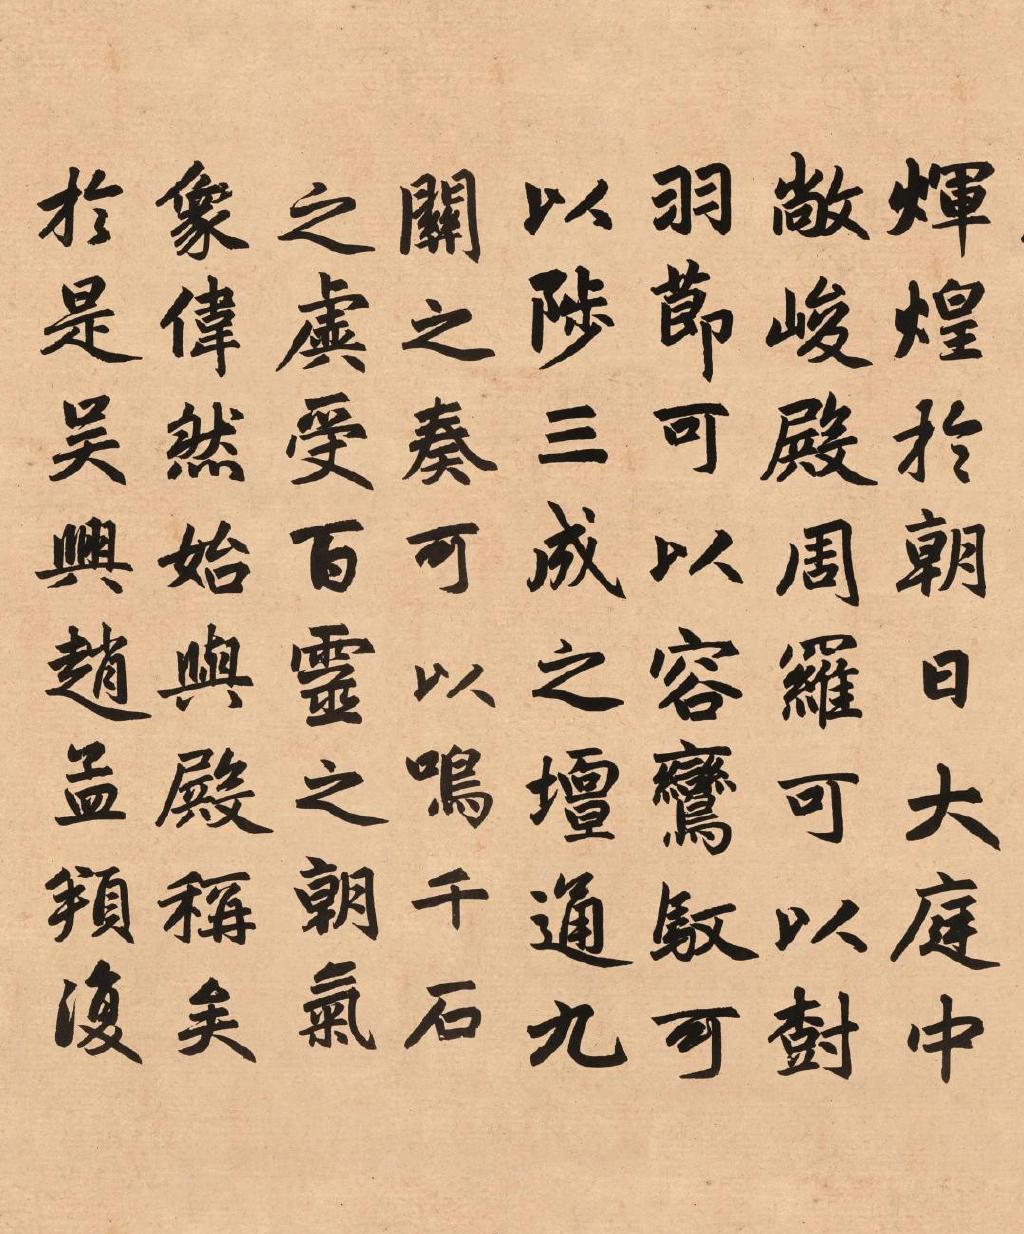 輝煌於朝日大庭中
敞峻殿周羅可以樹
羽節可以容鸞馭可
以陟三成之壇通九
關之奏可以鳴千石
之虡受百靈之朝氣
象偉然始與殿稱矣
於是吴興趙孟頫復